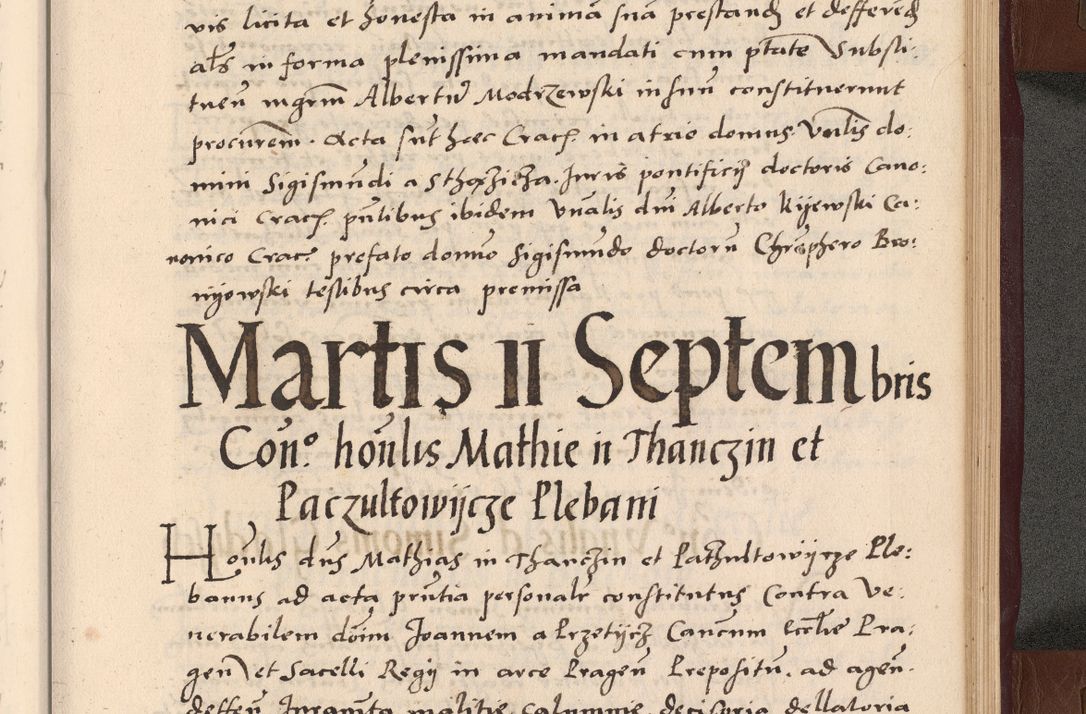 vis licita et honesta in animā suā prestandȝ et defferēdȝ
als̄ in forma plenissima mandati cum ptāte Substi:
tuen̄ mgrm̄ Albertū Modrzewski in suū constituerunt
procurem̄. Acta sūt hæc Crac̄. in atrio domus Vn̄lis do:
mini Sigismundi a Juris pontificij doctoris Cano:
nici Crac̄. pn̄tibus ibidem Vn̄alis dn̄i Alberto Kijewski Ca:
nonico Crac̄. prefato domno Sigismundo doctorū Christophero Bro:
nijowski testibus circa premissa
Martis II Septembris
Con̄.º hon̄lis Mathie in Thanczin et
Paczultowijcze Plebani
Hon̄lis dn̄s Mathias in Thanczin et Paczultowijcze Ple:
banus ad acta pn̄tia personalr̄ constitutus Contra Ve:
nerabilem dōm̄ Joannem a Przetijcz Can̄cum Eccl̄ie Pra:
gen̄ et Sacelli Regij in arce Pragen̄ Prepositū. ad agen̄.
deffen̄ Juram̄ta malitie calumnie decisoria dellatoria